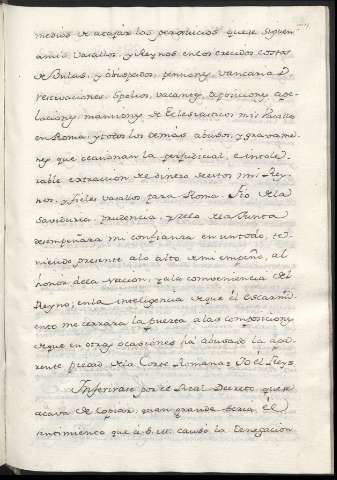 medios de atajar los perjuicios que se siguen
a mis Vasallos, y Reynos en los crecidos costas
de Bulas, y obispados, pensiones, vancaria D
reservaciones, Spolios, vacantes, deposiciones ape-
laciones, mansiones de Eclesiasticos mis Vasallos
en Roma, y otros los demás abusos, y gravame-
nes que ocasionan la perjudicial, e intole-
rable extraccion de dinero de estos mis Rey-
nos, y fieles vasallos para Roma. Fio de la
Saviduria, prudencia, y zelo de la Junta
desempeñara mi confianza en un todo, te-
niendo presente a lo alto de mi empeño, al
honor de la Naccion, y a la conveniencia del
Reyno; en la inteligencia de que él escarmi-
ento me cerrara la puerta a las composiciones
de que en otras ocasiones há abusado la apa-
rente piedad de la Corte Romana = Yo el Rey =
Inferirase por el Real Decreto, que se
acava de copiar, quan grande seria él
sentimiento que á S. M. causó la denegacion